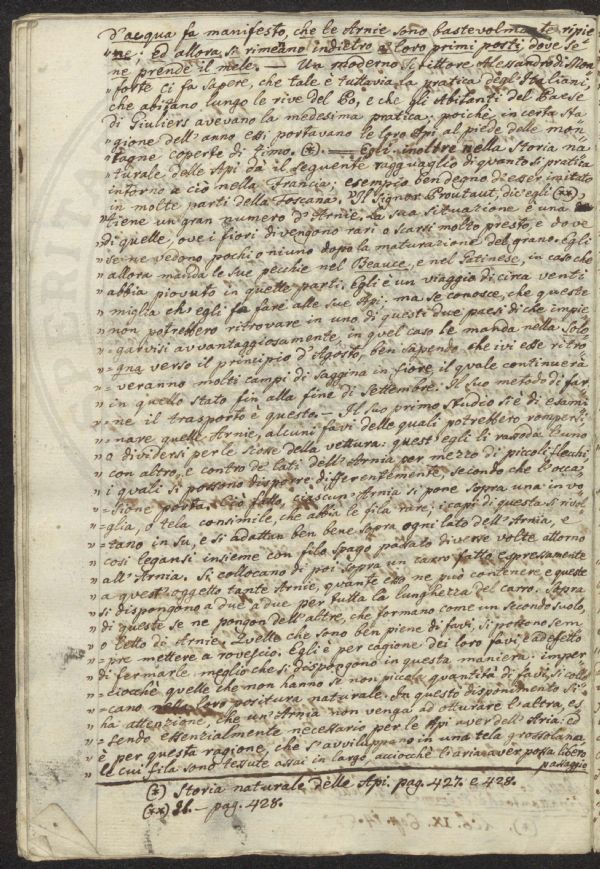 d'acqua fa manifesto, che le Arnie sono bastevolmente ripie
"ne; ed allora si rimeano indietro a loro primi posti, dove se
ne prende il mele. — Un moderno Scittore Alessandro di Mon
forte ci fa sapere, che tale è tuttavia la pratica degl'Italiani,
che abitano lungo le rive del Po, e che gli Abitanti del Paese
di Giuliers avevano la medesima pratica; poichè in certa Sta
gione dell'anno essi portavano le loro Api al piede delle mon
tagne coperte di timo. (*) — Egli inoltre nella Storia na
turale delle Api dà il seguente ragguaglio di quanto si pratica
intorno a ciò nella Francia; esempio ben degno di esser imitato
in molte parti della Toscana. "Il Signor Proutaut, dic'egli (**),
"tiene un gran numero d'Arnie. La sua situazione è una
" di quelle, ove i fiori divengono rari o scarsi molto presto, e dove
" se ne vedono pochi o niuno dopo la maturazione del grano. Egli
" allora manda le sue pecchie nel Beauce, e nel Gatinese, in caso che
" abbia piovuto in quelle parti. Egli è un viaggio di circa venti
" miglia ch'egli fa fare alle sue Api: ma se conosce, che queste
" non potrebbero ritrovare in uno di questi due paesi di che impie
" =garvisi avvantaggiosamente, in quel caso le manda nella Solo
" =gna verso il principio d'Agosto, ben sapendo che ivi esse ritro
" =veranno molti campi di Saggina in fiore, il quale continuerà
" in quello stato fin alla fine di Settembre. Il suo metodo di far
" =ne il trasporto è questo. — Il suo primo studio si è di esami
" nare quell'Arnie, alcuni favi delle quali potrebbero rompersi
" o dividersi per le scosse della vettura: quest'egli li rassoda l'uno
" con altro, e contro de' lati dell'Arnia per mezzo di piccoli stecchi
" i quali si possono disporre differentemente, secondo che l'occa
" =sione porta. Ciò fatto, ciascun'Arnia si pone sopra una invo
" =glia, o tela consimile, che abbia le fila rare; i capi di questa si rivol
" =tano in su, e si adattan ben bene sopra ogni lato dell'Arnia, e
" così legansi insieme con filo spago passato diverse volte attorno
" all'Arnia. Si collocano di poi sopra un carro fatto espressamente
" a quest'oggetto tante Arnie, quante esso ne può contenere e queste
" si dispongono a due a due per tutta la lunghezza del carro. Sopra
" di queste se ne pongon dell'altre, che formano come un secondo suolo,
" o letto di Arnie. Quelle che sono ben piene di favi, si possono sem
" pre mettere a rovescio. Egli è per cagione dei loro favi e ad effetto
" di fermarle meglio che si dispongono in questa maniera. imper
" ciocchè quelle che non hanno se non picco. quantità di favi, si collo
" =cano nella loro positura naturale. In questo disponimento si
" ha attenzione, che un'Arnia non venga ad otturare l'altra, es
" =sendo essenzialmente necessario per le Api aver dell'Aria: ed
" è per questa ragione, che s'avviluppano in una tela grossolana
" le cui fila sono tessute assai in largo, acciocchè l'aria aver possa libero
passaggio
(*) Storia naturale delle Api. pag. 427. e 428.
(**) Il. — pag. 428.